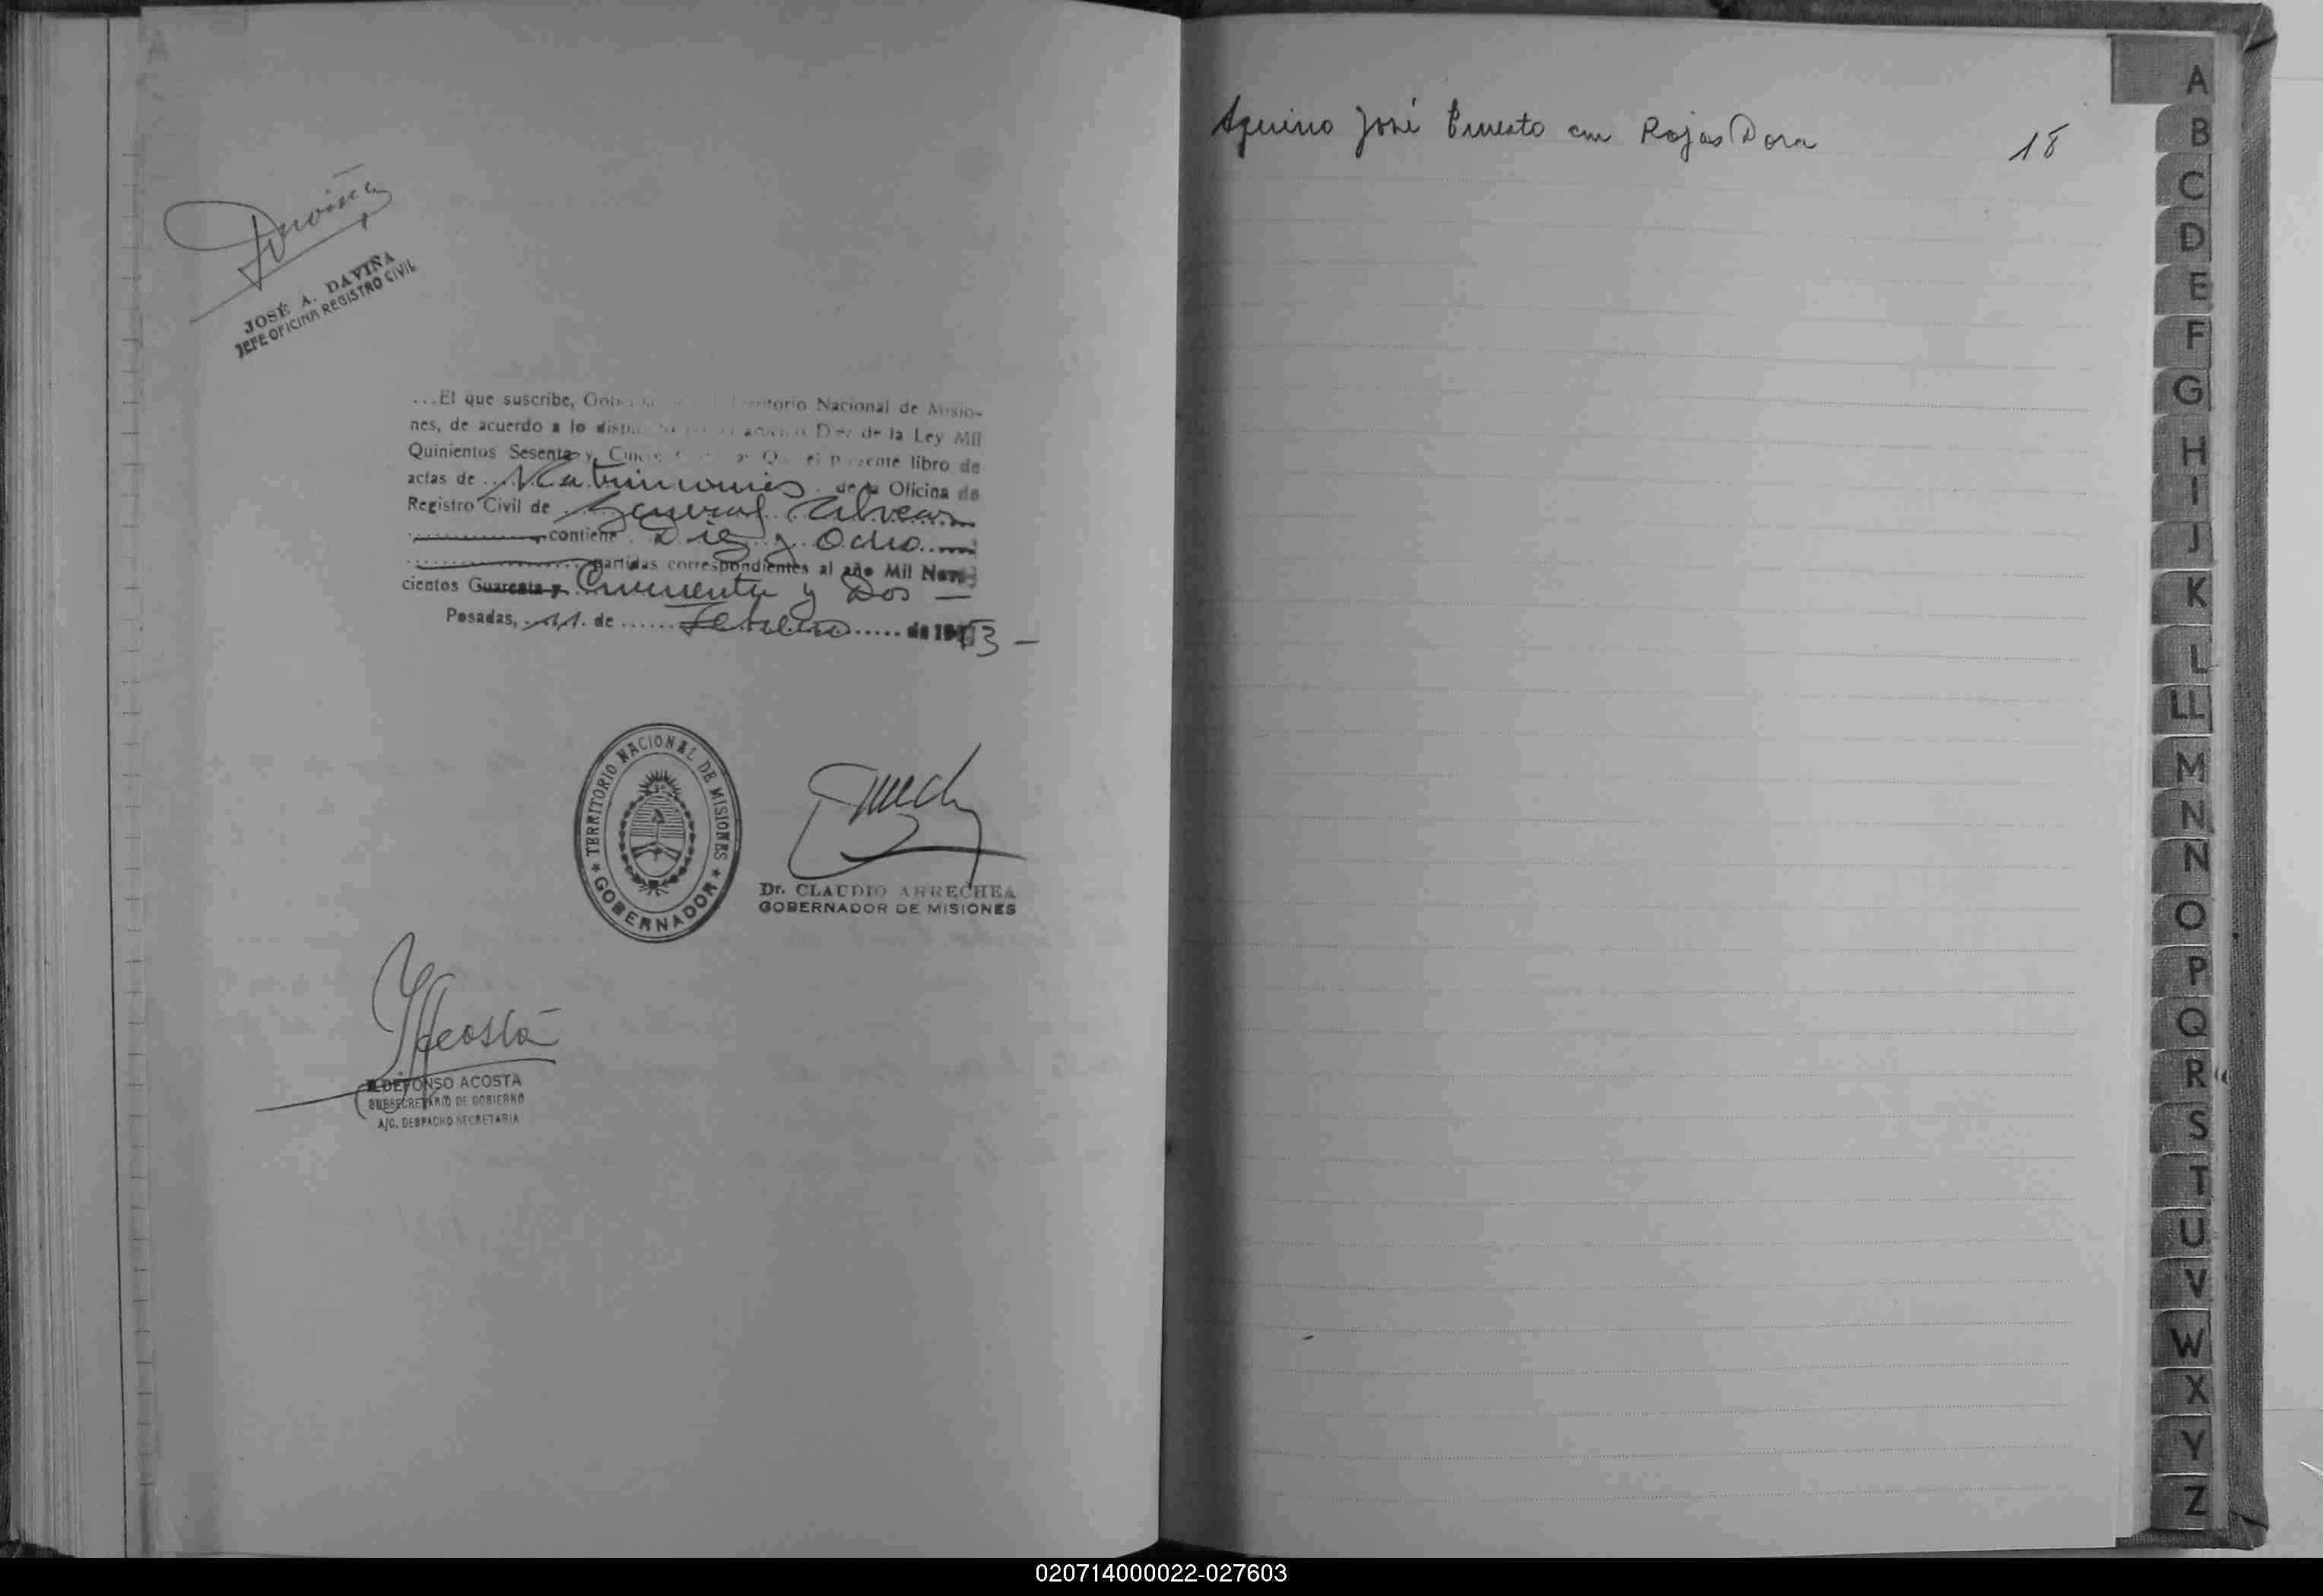 Daviña
JOSÉ A. DAVIÑA
JEFE OFICINA REGISTRO CIVIL
...El que suscribe, Territorio Nacional de Misio-
nes, de acuerdo a lo Diez de la Ley Mil
Quinientos Sesenta y Cinco el presente libro de
actas de Matrimonios de la Oficina de
Registro Civil de General Alvear
contiene Diez y Ocho
partidas correspondientes al año Mil Nove-
cientos Cuarenta y Cincuenta y Dos —
Posadas, 11 de Febrero de 1953 —
TERRITORIO NACIONAL DE MISIONES
★ GOBERNADOR ★
Dr. CLAUDIO ARRECHEA
GOBERNADOR DE MISIONES
Acosta
ILDEFONSO ACOSTA
SUBSECRETARIO DE GOBIERNO
A/C. DESPACHO SECRETARIA
Aquino José Ernesto con Rojas Dora 18
A
B
C
D
E
F
G
H
I
J
K
L
LL
M
N
N
O
P
Q
R
S
T
U
V
W
X
Y
Z
020714000022-027603